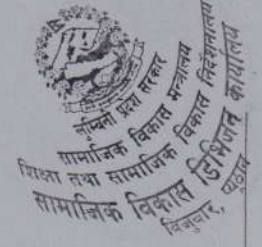 लुम्बिनी प्रदेश सरकार
सामाजिक विकास मन्त्रालय
शिक्षा तथा सामाजिक विकास निर्देशनालय
सामाजिक विकास डिभिजन कार्यालय
विजुवार, प्यूठान